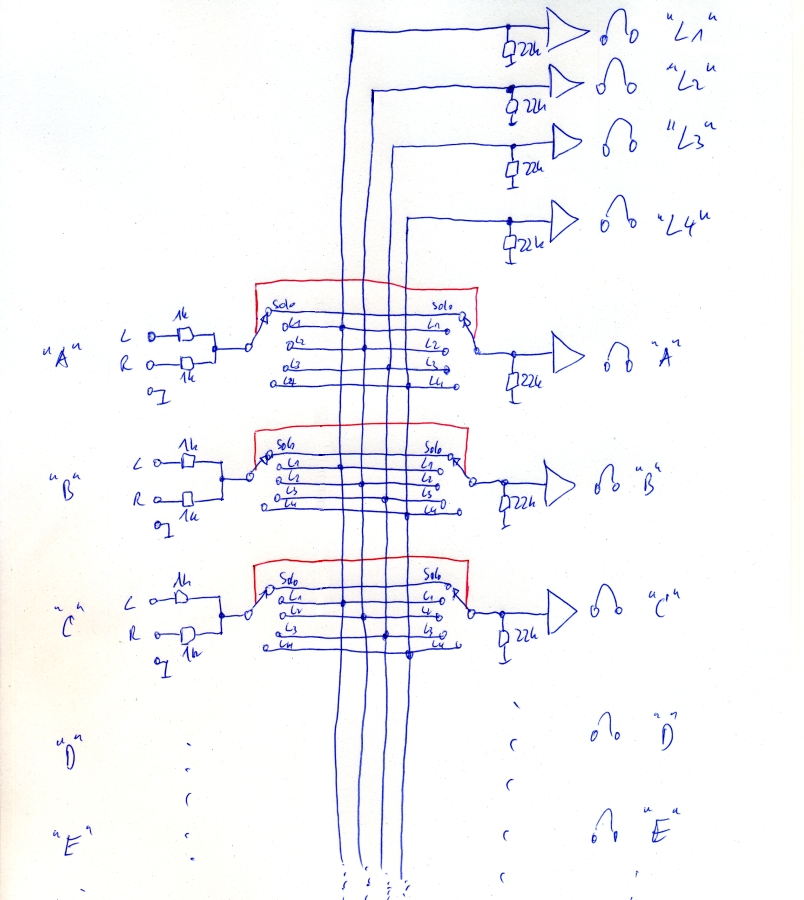 "L1"
22k
"L2"
22k
"L3"
22k
"L4"
22k
Solo Solo
1k
L L1 L1
"A" L2 L2 "A"
R L3 L3
1k L4 L4 22k
Solo Solo
1k
L L1 L1
"B" L2 L2 "B"
R L3 L3
1k L4 L4 22k
Solo Solo
1k
L L1 L1 "C"
"C" L2 L2
R L3 L3 22k
1k L4 L4
"D" "D"
"E" "E"